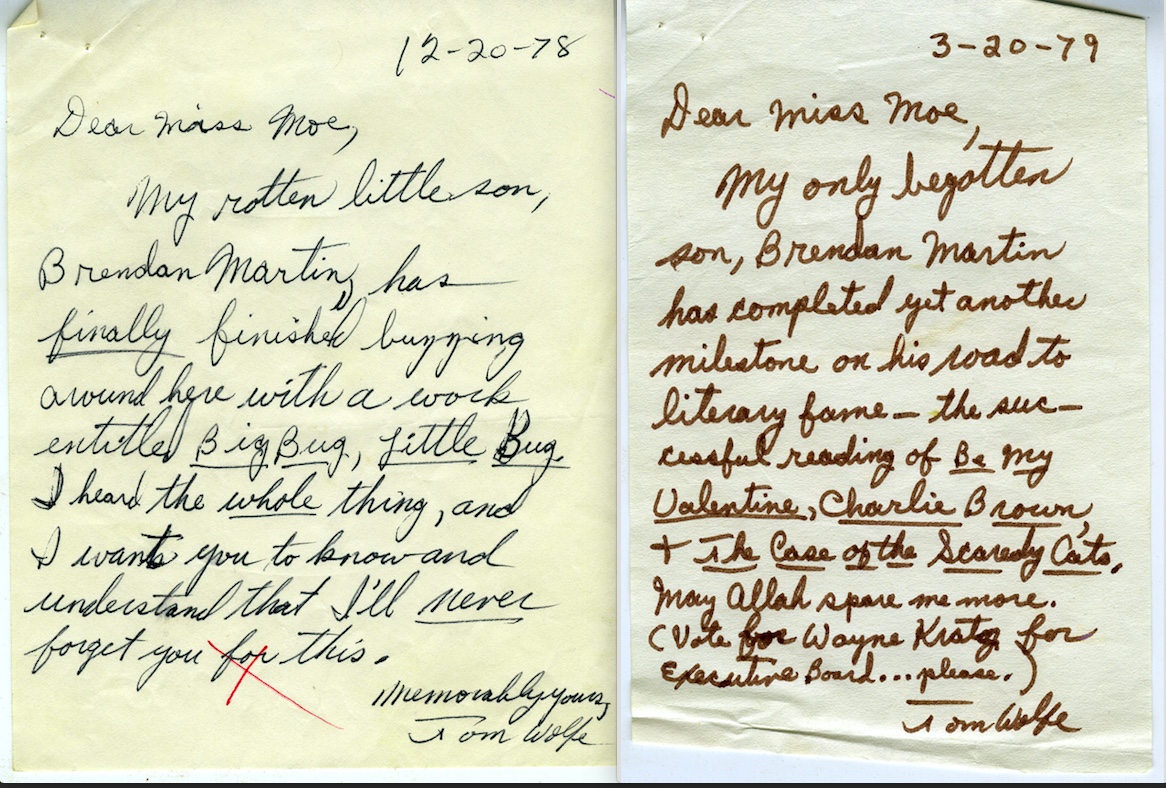 12-20-78
Dear Miss Moe,
My rotten little son,
Brendan Martin, has
finally finished bugging
around here with a work
entitled Big Bug, Little Bug.
I heard the whole thing, and
I want you to know and
understand that I'll never
forget you for this.
Memorably yours,
Tom Wolfe
3-20-79
Dear Miss Moe,
My only begotten
son, Brendan Martin
has completed yet another
milestone on his road to
literary fame — the suc-
cessful reading of Be My
Valentine, Charlie Brown,
+ The Case of the Scaredy Cats.
May Allah spare me more.
(Vote for Wayne for
Executive Board... please.)
Tom Wolfe